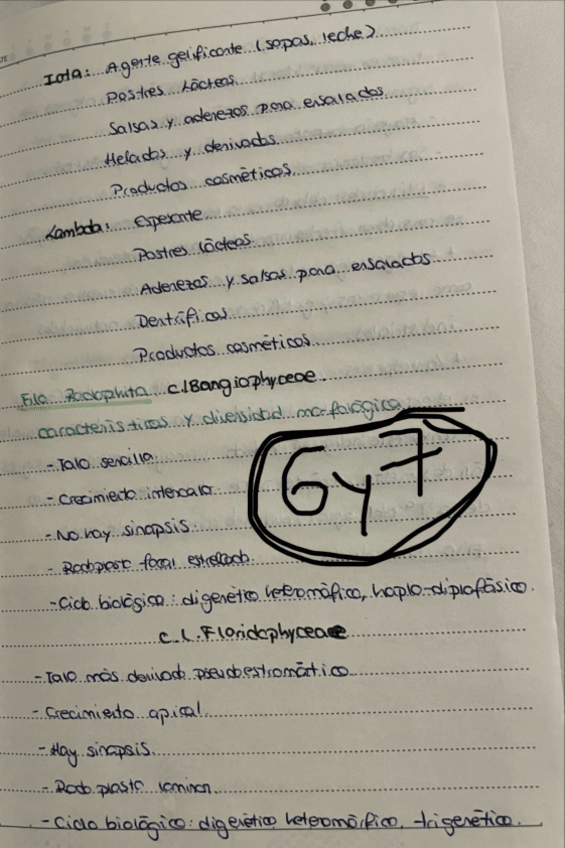 Iota: Agente gelificante (sopas, leche)
Postres Lácteos
Salsas y aderezos para ensaladas
Helados y derivados
Productos cosméticos
Lambda: Espesante
Postres lácteos
Aderezos y salsas para ensaladas
Dentríficos
Productos cosméticos
Filo Rodophita c.lBangiophyceae.
características y diversidad morfológica
- Talo sencillo
- Crecimiento intercalar
6 y 7
- No hay sinapsis
- Rodoplasto focal estrellado
- Ciclo biológico: digenético heteromófico, haplo-diplofásico.
c.l. Floridophyceae
- Talo más derivado pseudoestromático
- Crecimiento apical
- Hay sinapsis
- Rodoplasto
- Ciclo biológico: digenético heteromórfico, trigenético.